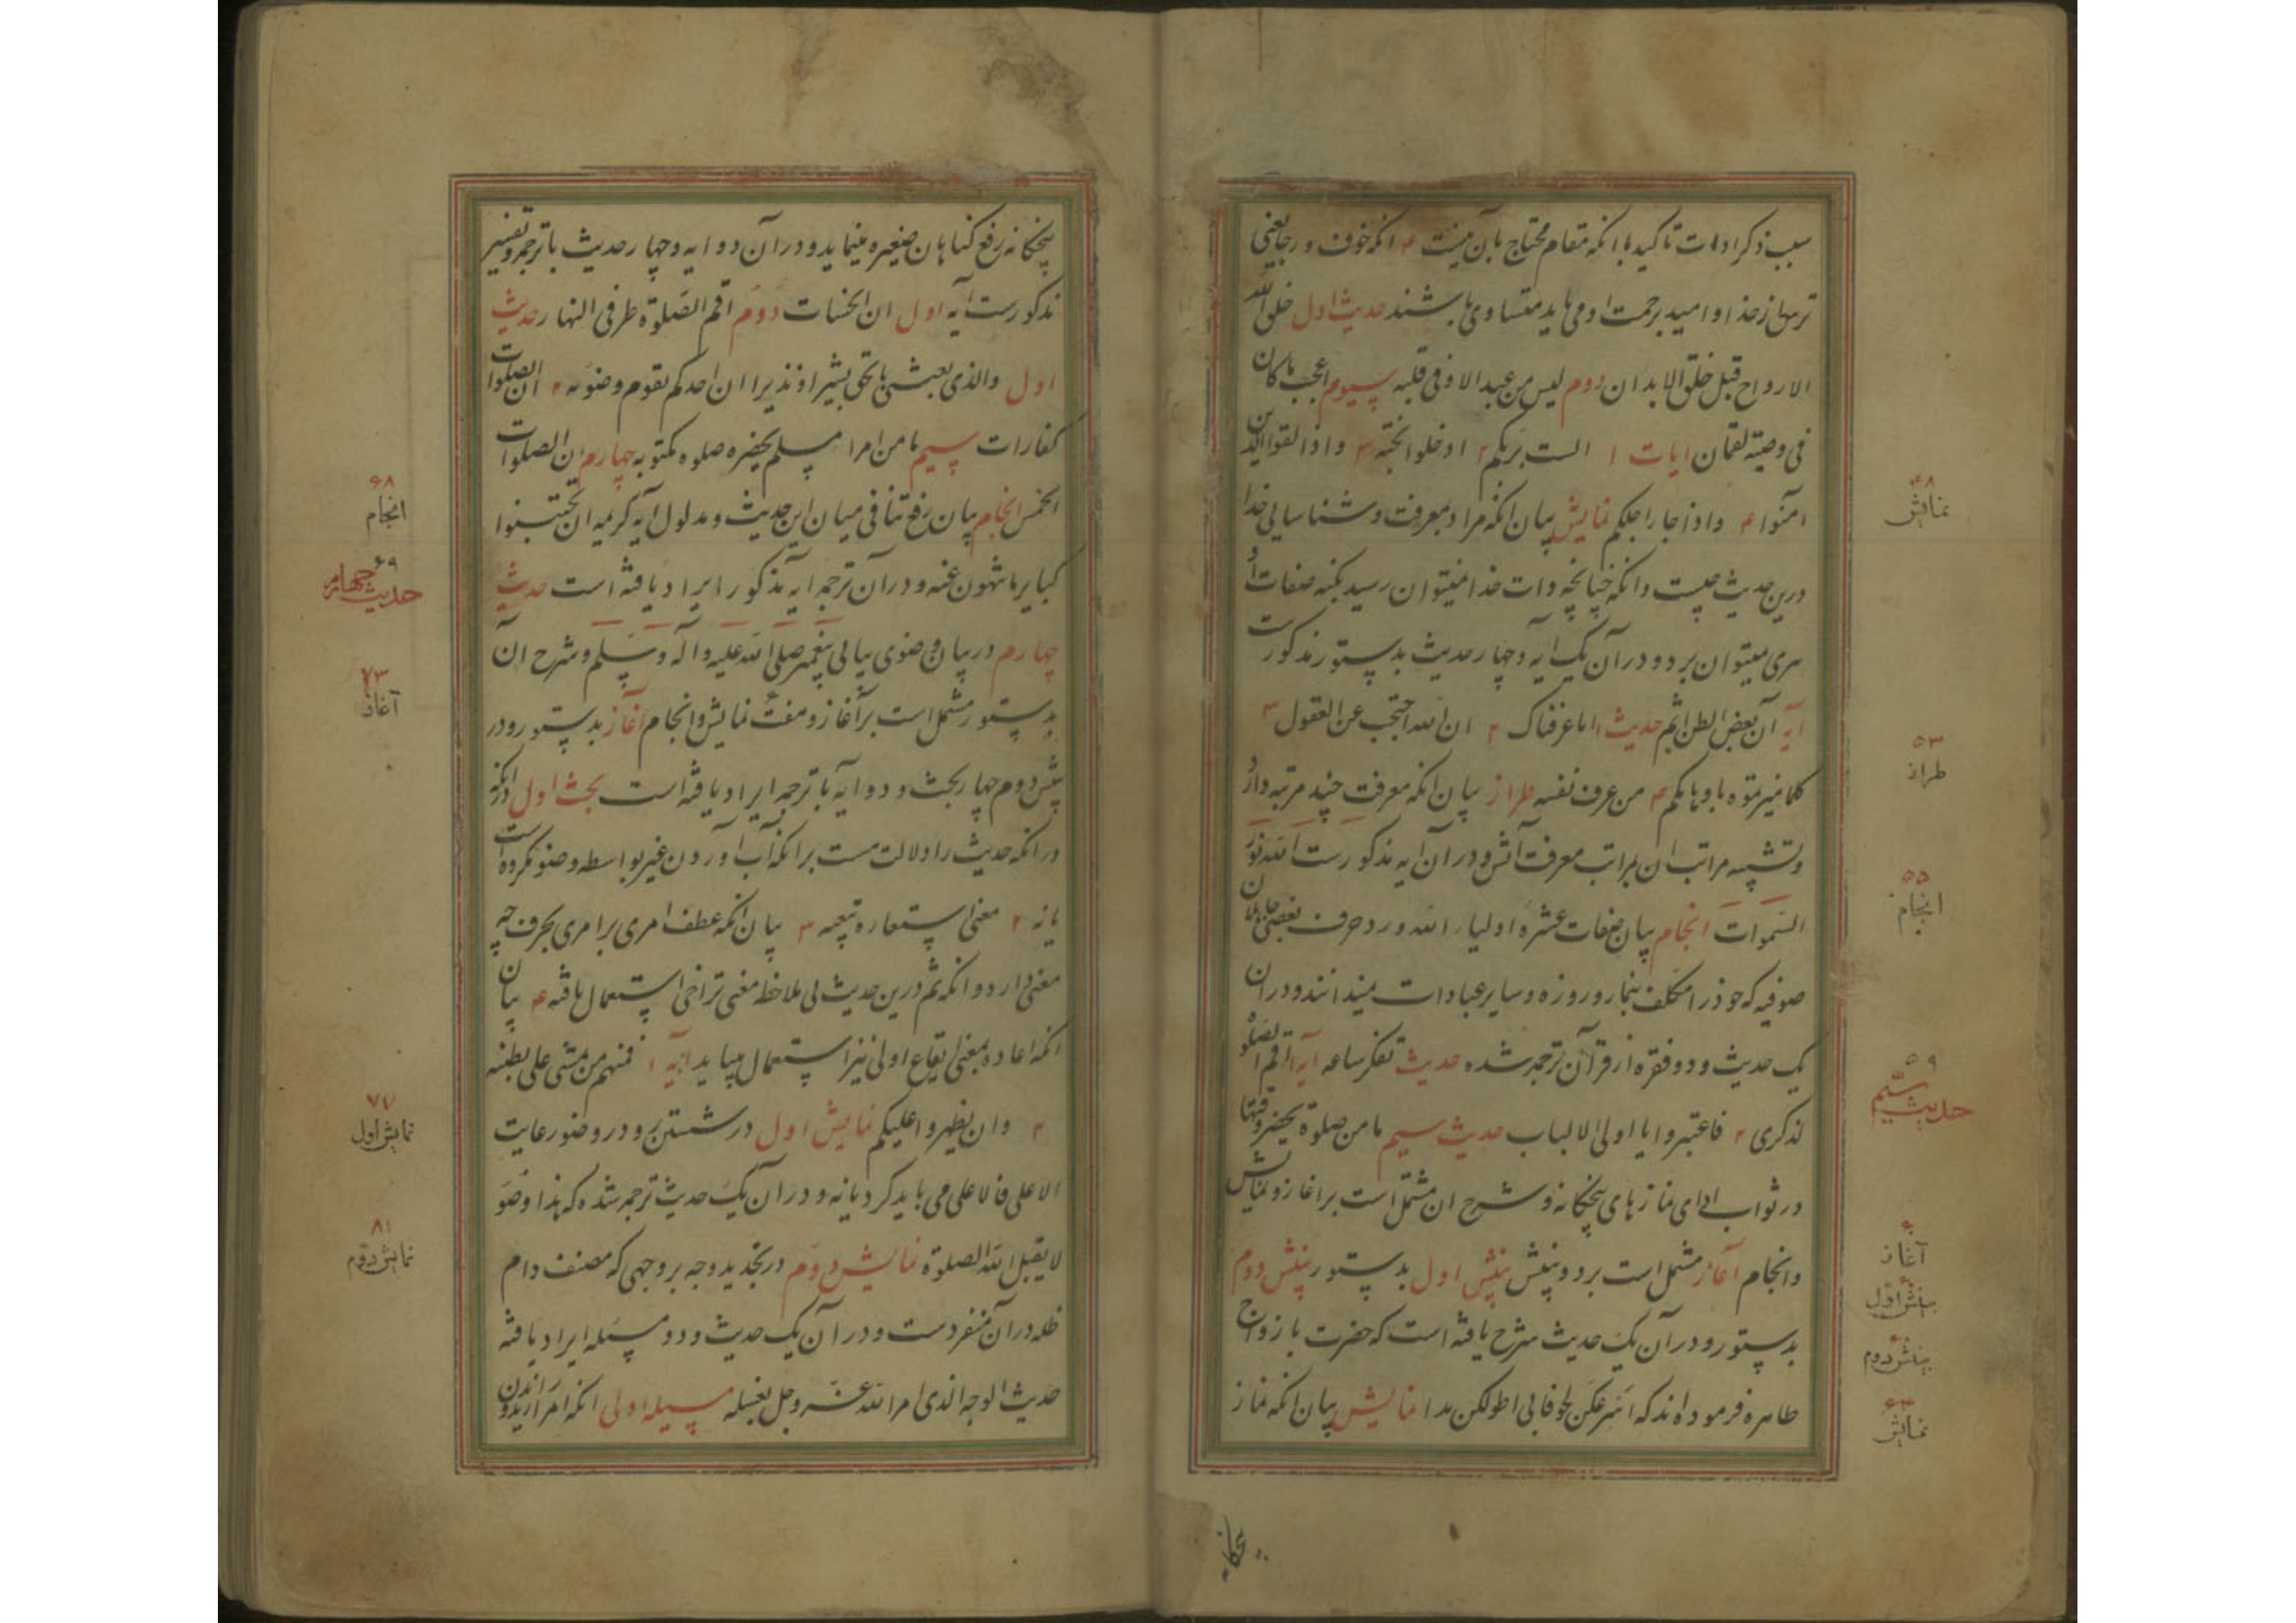 سبب ذکر ادات تاکید با انکه مقام محتاج بآن نیست ۴ انکه خوف و رجا یعنی
ترس از خدا و امید برحمت او می باید متساوی باشند حدیث اول خلق الله
الارواح قبل خلق الابدان دوم لیس من عبد الا و فی قلبه سیوم اعجب ما کان
فی وصیته لقمان ایات ۱ الست بربکم ۲ ادخلوا الجنة ۳ و اذا لقوا الذین
امنوا ۴ و اذا جا اجلکم نمایش بیان انکه مراد بمعرفت و شناسایی خدا
درین حدیث چیست و انکه چنانچه بذات خدا نمیتوان رسید بکنه صفات او
پی نمیتوان برد و در آن یک آیه و چهار حدیث بدستور مذکورست
آیه ان بعض الظن اثم حدیث ۱ ما عرفناک ۲ ان الله احتجب عن العقول ۳
کلما میزتموه باوهامکم ۴ من عرف نفسه طراز بیان انکه معرفت چند مرتبه دارد
و تشبیه مراتب ان بمراتب معرفت آتش و در ان آیه مذکورست الله نور
السموات انجام بیان صفات عشره اولیاء الله و رد حرف بعضی جاهلان
صوفیه که خود را مکلف بنماز و روزه و سایر عبادات نمیدانند و در ان
یک حدیث و دو فقره از قرآن ترجمه شده حدیث تفکر ساعه آیه ۱ اقم الصلوة
لذکری ۲ فاعتبروا یا اولی الالباب حدیث سیم ما من صلوة یحضر وقتها
در ثواب ادای نمازهای پنجکانه و شرح ان مشتمل است بر اغاز و نمایش
و انجام آغاز مشتمل است بر دو بینش بینش اول بدستور بینش دوم
بدستور و در آن یک حدیث شرح یافته است که حضرت بازواج
طاهره فرموده اند که اسرعکن لحوقا بی اطولکن یدا نمایش بیان انکه نماز
پنجکانه
۴۸
نمایش
۵۳
طراز
۵۵
انجام
۵۹
حدیث سیم
آغاز
بینش اول
بینش دوم
۶۳
نمایش
پنجکانه رفع کناهان صغیره مینماید و در آن دو ایه و چهار حدیث با ترجمه و تفسیر
مذکورست آیه اول ان الحسنات دوم اقم الصلوة طرفی النهار حدیث
اول والذی بعثنی بالحق بشیرا و نذیرا ان احدکم لیقوم وضوئه ۲ ان الصلوات
کفارات سیم ما من امرا مسلم یحضره صلوه مکتوبه چهارم ان الصلوات
الخمس انجام بیان رفع تنافی میان این حدیث و مدلول آیه کریمه ان تجتنبوا
کبایر ما تنهون عنه و در آن ترجمه ایه مذکور ایراد یافته است حدیث
چهارم در بیان وضوی بیانی پیغمبر صلی الله علیه و آله و سلم و شرح آن
بدستور مشتمل است بر آغاز و هفت نمایش و انجام آغاز بدستور و در
بینش دوم چهار بحث و دو ایه با ترجمه ایراد یافته است بحث اول
در انکه حدیث را دلالت هست بر انکه آب آوردن غیر بواسطه وضو مکروه است
یا نه ۲ معنی استعاره تبعیه ۳ بیان انکه عطف امری بر امری بحرف چه
معنی دارد و انکه ثم درین حدیث بی ملاحظه معنی تراخی استعمال یافته ۴ بیان
انکه اعاده بمعنی ایقاع اولی نیز استعمال مییابد آیه ۱ فمنهم من یمشی علی بطنه
۲ و ان یظهروا علیکم نمایش اول در شستن رو و در وضو رعایت
الاعلی فالاعلی می باید کرد یا نه و در آن یک حدیث ترجمه شده که هذا وضوء
لا یقبل الله الصلوة نمایش دوم در تحدید وجه بر وجهی که مصنف دام
ظله در آن منفردست و در آن یک حدیث و دو مسئله ایراد یافته
حدیث الوجه الذی امر الله عز و جل بغسله مسیله اولی انکه
۶۸
انجام
۶۹
حدیث چهارم
۷۳
آغاز
۷۷
نمایش اول
۸۱
نمایش دوم